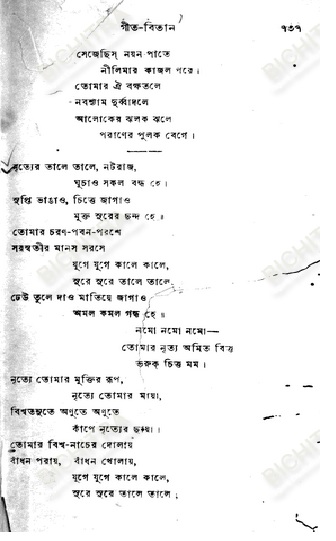 গীত-বিতান ৭৩৭
সেজেছিস্ নয়ন-পাতে
নীলিমার কাজল পরে।
তোমার ঐ বক্ষতলে
নবশ্যাম দুর্ব্বাদলে
আলোকের ঝলক ঝলে
পরাণের পুলক বেগে।
নৃত্যের তালে তালে, নটরাজ,
ঘুচাও সকল বন্ধ হে।
সুপ্তি ভাঙাও, চিত্তে জাগাও
মুক্ত সুরের ছন্দ হে॥
তোমার চরণ-পবন-পরশে
সরস্বতীর মানস সরসে
যুগে যুগে কালে কালে,
সুরে সুরে তালে তালে
ঢেউ তুলে দাও মাতিয়ে জাগাও
অমল কমল গন্ধ হে॥
নমো নমো নমো—
তোমার নৃত্য অমিত বিত্ত
ভরুক্ চিত্ত মম।
নৃত্যে তোমার মুক্তির রূপ,
নৃত্যে তোমার মায়া,
বিশ্বতনুতে অণুতে অণুতে
কাঁপে নৃত্যের ছায়া।
তোমার বিশ্ব-নাচের দোলায়
বাঁধন পরায়, বাঁধন খোলায়,
যুগে যুগে কালে কালে,
সুরে সুরে তালে তালে;
BICHITRA